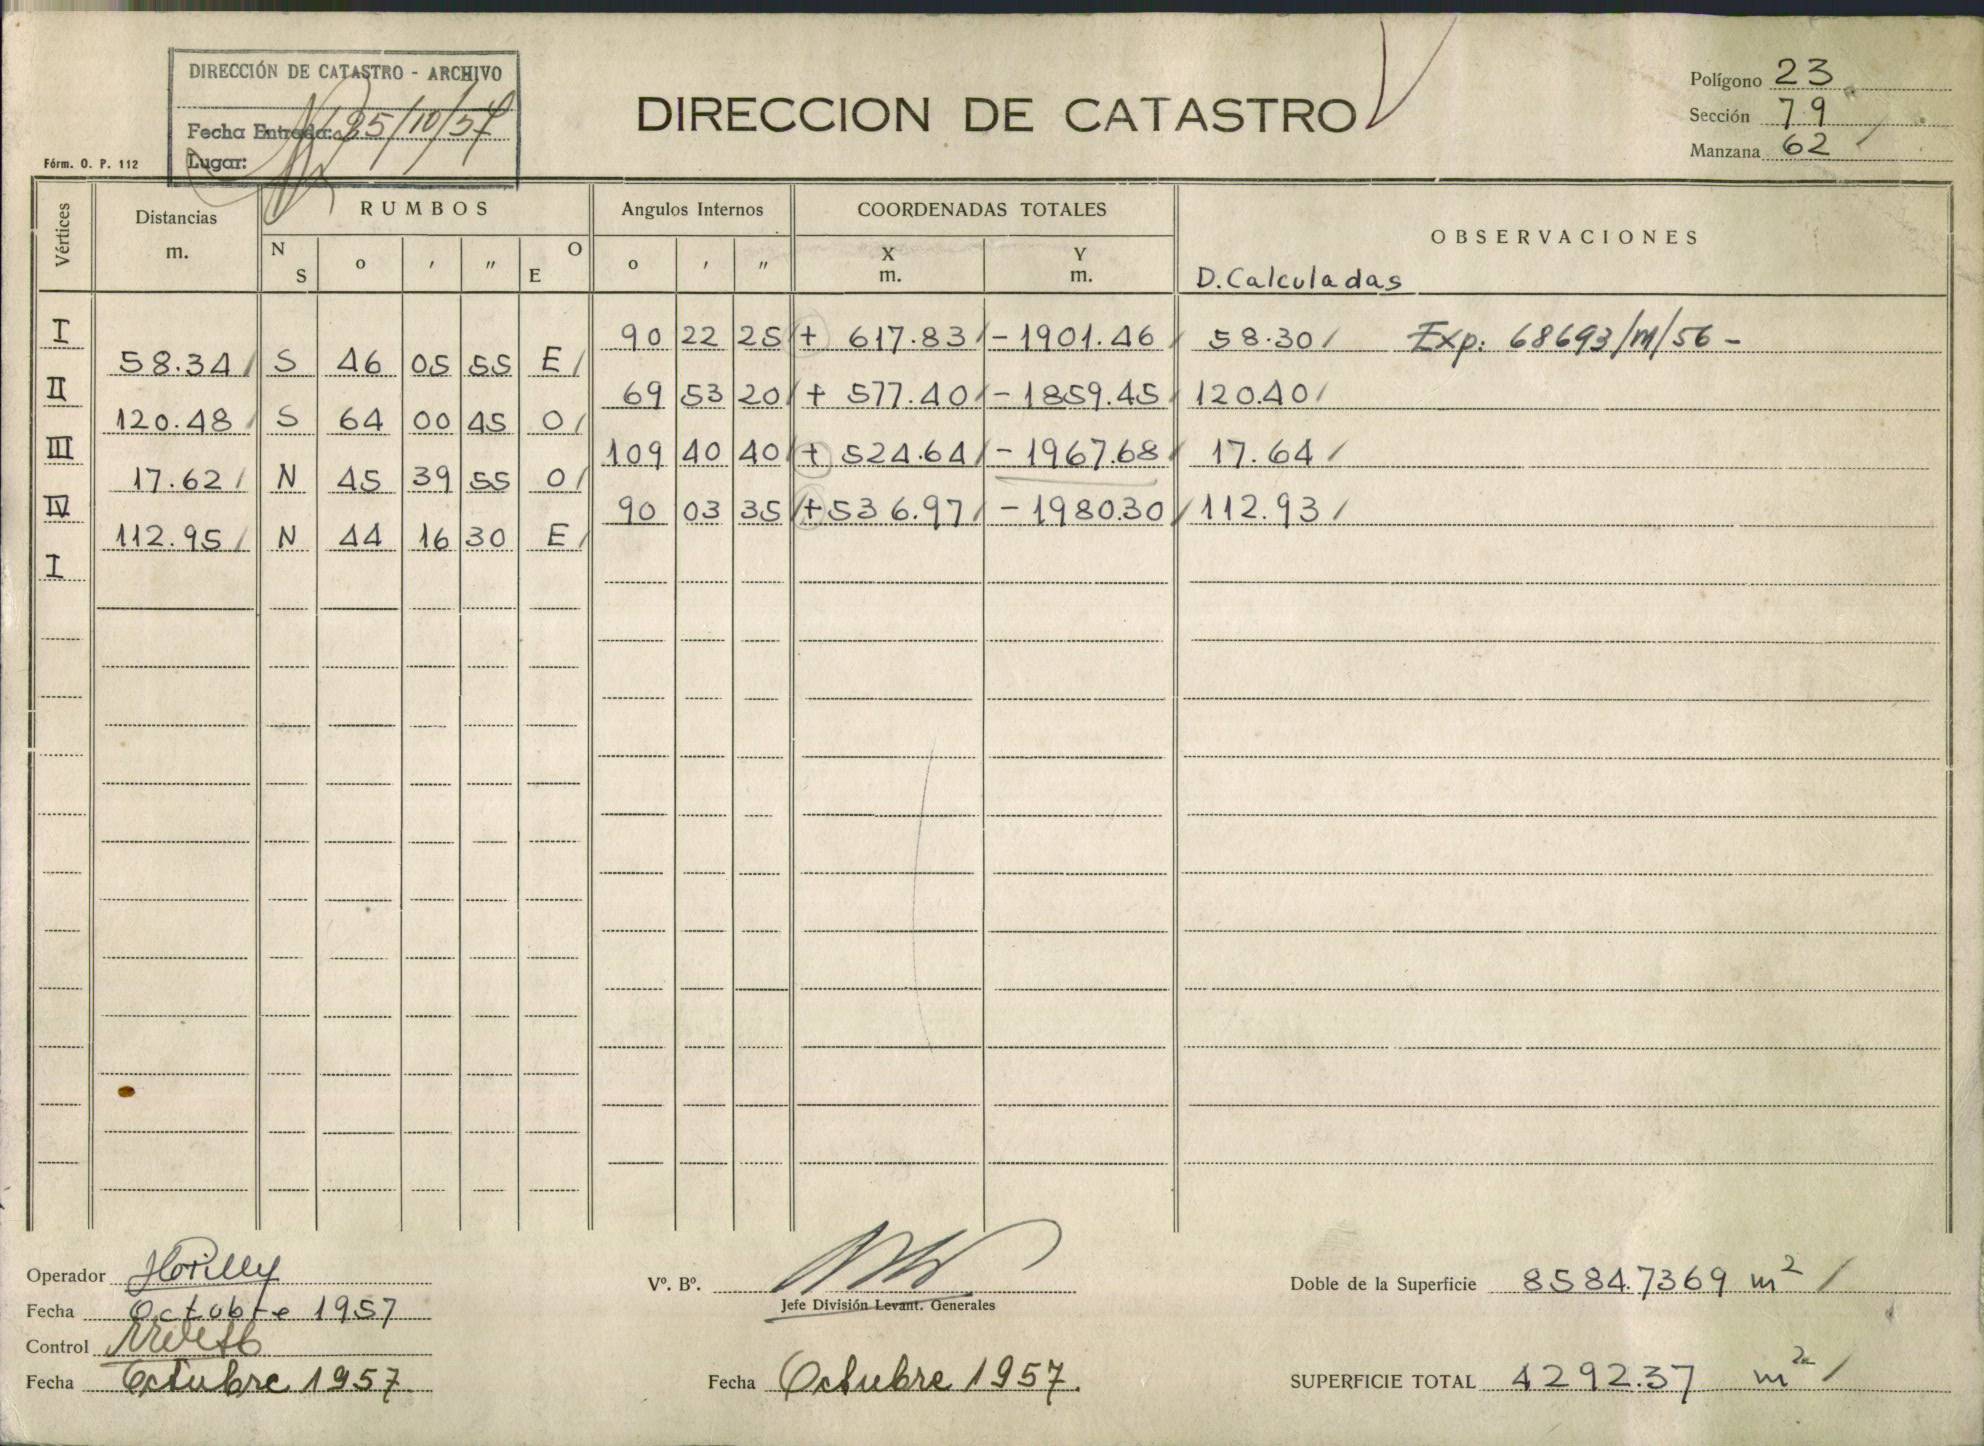 DIRECCIÓN DE CATASTRO - ARCHIVO
Fecha Entrada: 25/10/57
Lugar:
Fórm. O. P. 112
DIRECCION DE CATASTRO
Polígono 23
Sección 79
Manzana 62
Vértices Distancias m. RUMBOS Angulos Internos COORDENADAS TOTALES OBSERVACIONES
N S o ' " O E o ' " X m. Y m. D. Calculadas
I 90 22 25 + 617.83 - 1901.46 58.30 Exp: 68693/M/56 -
58.34 S 46 05 55 E
II 69 53 20 + 577.40 - 1859.45 120.40
120.48 S 64 00 45 O
III 109 40 40 + 524.64 - 1967.68 17.64
17.62 N 45 39 55 O
IV 90 03 35 + 536.97 - 1980.30 112.93
112.95 N 44 16 30 E
I
Operador
Fecha Octubre 1957
Control
Fecha Octubre 1957.
Vº. Bº.
Jefe División Levant. Generales
Fecha Octubre 1957.
Doble de la Superficie 8584.7369 m²
SUPERFICIE TOTAL 4292.37 m²